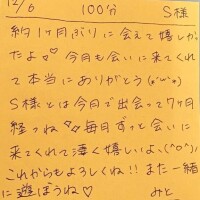 12/6 100分 S様
約1ヶ月ぶりに会えて嬉しかっ
たよ♡今日も会いに来てくれ
て本当にありがとう(*'ω'*)
S様とは今月で出会って7ヶ月
経つね♡♡毎月ずっと会いに
来てくれて凄く嬉しいよ、(^o^)/
これからもよろしくね!!また一緒
に遊ぼうね♡
みと